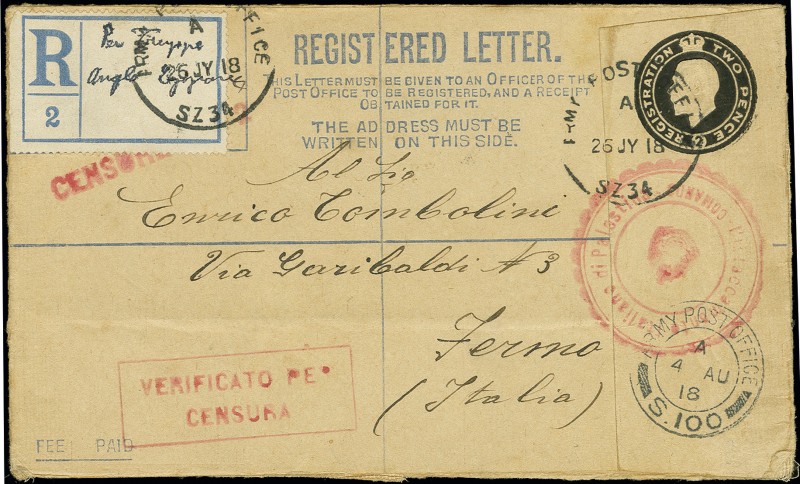 R
2
Per Truppe
Anglo Egiziane
ARMY POST OFFICE
A
26 JY 18
SZ34
CENSURA
REGISTERED LETTER.
THIS LETTER MUST BE GIVEN TO AN OFFICER OF THE
POST OFFICE TO BE REGISTERED, AND A RECEIPT
OBTAINED FOR IT.
THE ADDRESS MUST BE
WRITTEN ON THIS SIDE.
REGISTRATION TWO PENCE
FEE
ARMY POST
A
26 JY 18
SZ34
Al Sig
Enrico Tombolini
Via Garibaldi N 3
Fermo
(Italia)
COMANDO
Italiano di Palestina
VERIFICATO PER
CENSURA
ARMY POST OFFICE
A
4 AU
18
S.100
FEE PAID